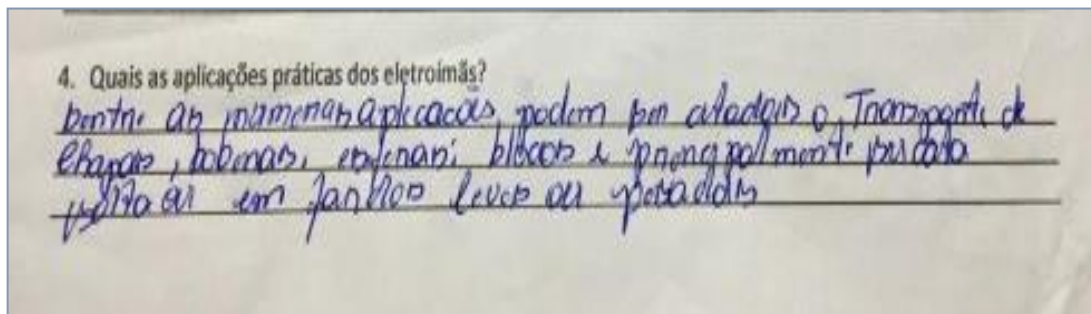 4. Quais as aplicações práticas dos eletroímãs?
Dentre as inumeras aplicacões, podem ser citadas o, Transporte de
Chapas, bobinas, esferas, blocos e principalmente sucata
em fardos leves ou pesados